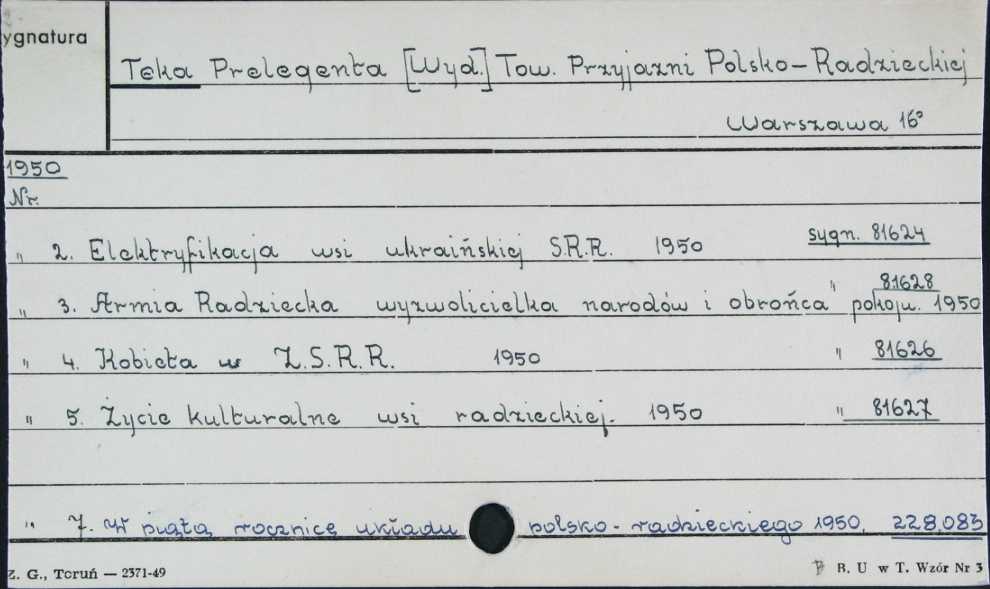 ygnatura
Teka Prelegenta [Wyd.] Tow. Przyjaźni Polsko-Radzieckiej
Warszawa 16°
1950
Nr.
" 2. Elektryfikacja wsi ukraińskiej S.R.R. 1950 sygn. 81624
" 3. Armia Radziecka wyzwolicielka narodów i obrońca pokoju. 1950 " 81628
" 4. Kobieta w Z.S.R.R. 1950 " 81626
" 5. Życie kulturalne wsi radzieckiej. 1950 " 81627
" 7. W piątą rocznicę układu polsko-radzieckiego 1950. 228.083
Z. G., Toruń — 2371-49
B. U w T. Wzór Nr 3